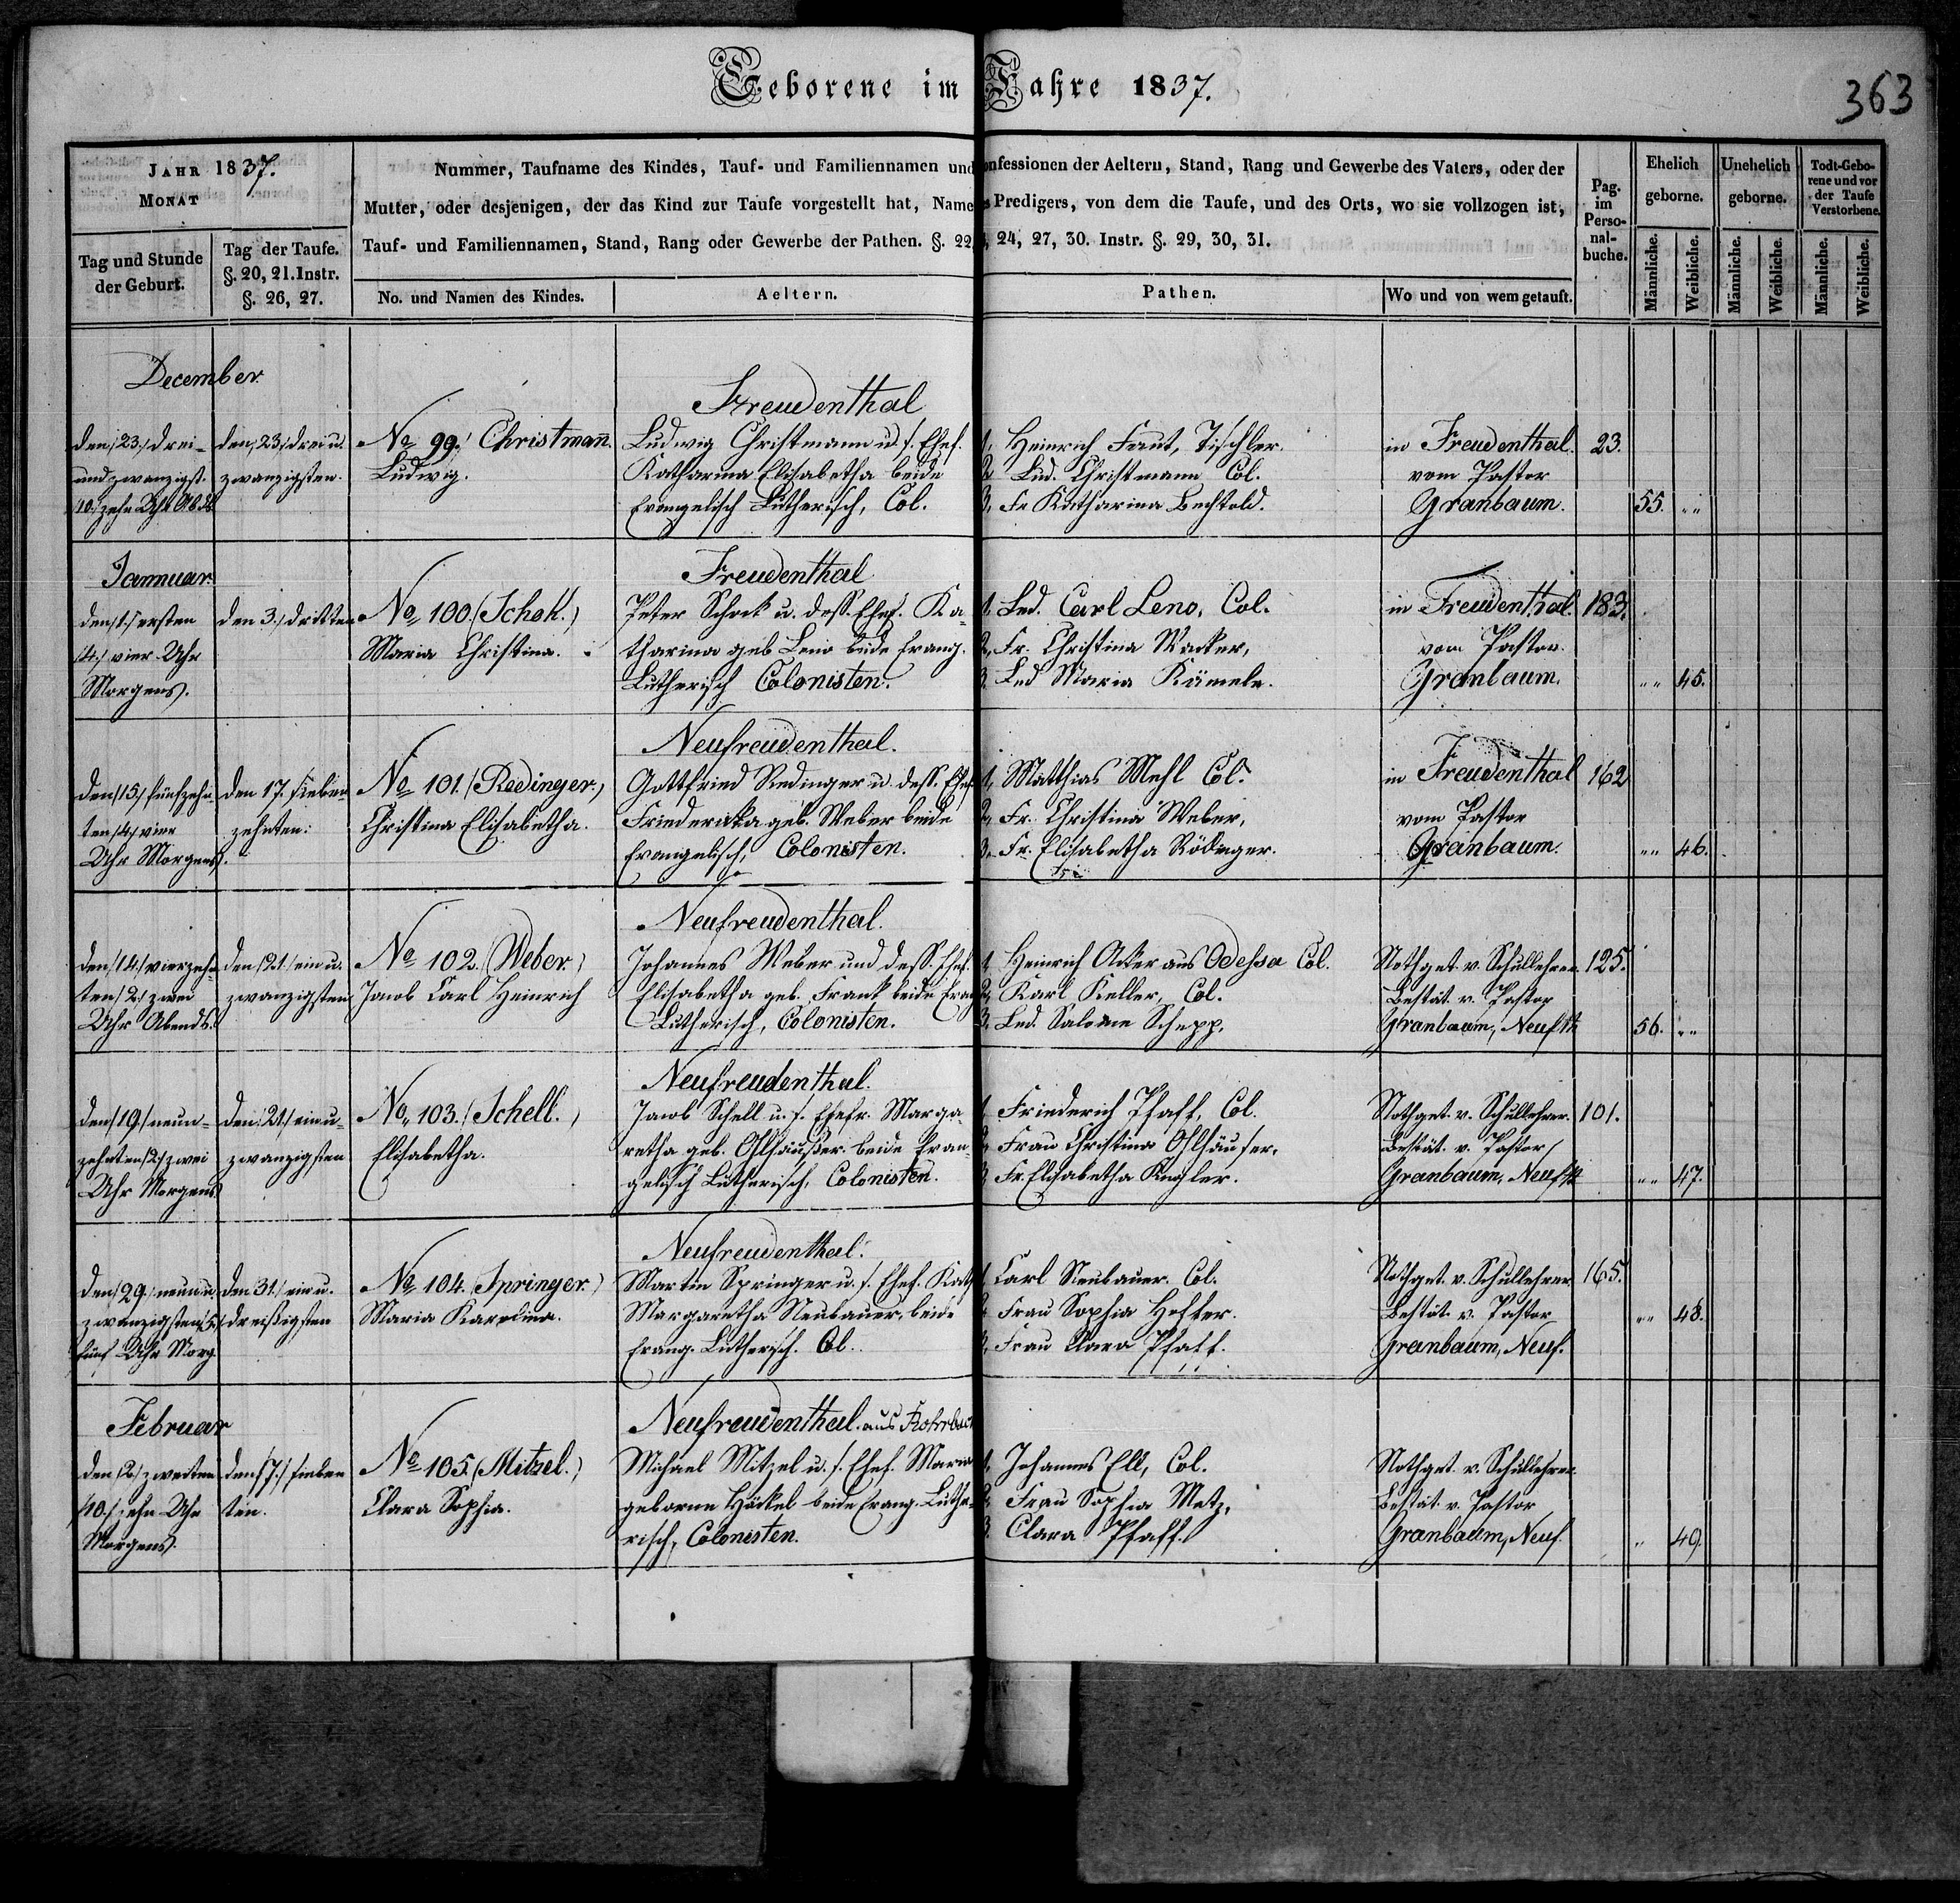 Geborene im Jahre 1837.
363
JAHR 1837.
MONAT
Tag und Stunde der Geburt.
Tag der Taufe. §. 20, 21. Instr. §. 26, 27.
Nummer, Taufname des Kindes, Tauf- und Familiennamen und onfessionen der Aeltern, Stand, Rang und Gewerbe des Vaters, oder der
Mutter, oder desjenigen, der das Kind zur Taufe vorgestellt hat, Name s Predigers, von dem die Taufe, und des Orts, wo sie vollzogen ist,
Tauf- und Familiennamen, Stand, Rang oder Gewerbe der Pathen. §. 22, 24, 27, 30. Instr. §. 29, 30, 31.
No. und Namen des Kindes.
Aeltern.
Pathen.
Wo und von wem getauft.
Pag. im Perso-nal-buche.
Ehelich geborne.
Unehelich geborne.
Todt-Gebo-rene und vor der Taufe Verstorbene.
Männliche. Weibliche. Männliche. Weibliche. Männliche. Weibliche.
December.
Freudenthal
den /23./ drei- den /23./ drei u. No 99. / Christmañ. Ludwig Christmann u. s. Ehef. 1, Heinrich Faut, Tischler. in Freudenthal. 23.
und zwanzigst. zwanzigsten. Ludwig. Katharina Elisabetha beide 2, Led. Christmann Col. vom Pastor
/10./ zehn Uhr Abds Evangelisch Lutherisch, Col. 3, Fr Katharina Bechtold. Granbaum. 55. "
Jannuar.
Freudenthal
den /1./ ersten den 3./ dritten No 100. (Schok.) Peter Schock u. dess. Ehef. Ka- 1, Led. Carl Leno, Col. in Freudenthal. 183.
/4./ vier Uhr Maria Christina. tharina geb Leno beide Evang. 2, Fr. Christina Wacker, vom Pastor.
Morgens. Lutherisch Colonisten. 3. Led Maria Kämele. Granbaum. " 45.
Neufreudenthal.
den /15./ fünfzehn- den 17. sieben- No 101. (Redinger.) Gottfried Redinger u. dess. Ehef. 1, Matthias Mehl Col. in Freudenthal 162
ten /4./ vier zehnten. Christina Elisabetha. Friedericka geb. Weber beide 2, Fr. Christina Weber, vom Pastor
Uhr Morgens. Evangelisch, Colonisten. 3. Fr. Elisabetha Rödinger. Granbaum. " 46.
Neufreudenthal.
den /14./ vierzehn- den /21./ ein u. No 102. (Weber.) Johannes Weber und dess. Ehef. 1, Heinrich Acker aus Odessa Col. Nothget. v. Schullehrer. 125.
ten /2./ zwei zwanzigsten Jacob Carl Heinrich Elisabetha geb. Frank beide Evang 2, Karl Keller, Col. Bestät. v. Pastor
Uhr Abends. Lutherisch, Colonisten. 3. Led. Salome Schepp. Granbaum, Neufth 56. "
Neufreudenthal.
den /19./ neun- den /21./ ein u- No. 103. (Schell.) Jacob Schell u. s. Ehefr. Marga- 1, Friederich Pfaff, Col. Nothget. v. Schullehrer. 101.
zehnten /2./ zwei zwanzigsten Elisabetha. retha geb. Ohlhäußer. beide Evan- 2, Frau Christina Ohlhäuser, Bestät. v. Pastor
Uhr Morgens gelisch Lutherisch, Colonisten. 3, Fr. Elisabetha Kugler. Granbaum, Neufth " 47.
Neufreudenthal.
den /29./ neun u. den 31./ ein u. No 104. Springer.) Martin Springer u. s. Ehef. Kath 1, Carl Neubauer. Col. Nothget. v. Schullehrer. 165.
zwanzigsten /5./ dreißigsten Maria Karolina. Margaretha Neubauer, beide 2, Frau Sophia Bestät. v. Pastor " 48.
fünf Uhr Morg. Evang. Lutherisch. Col. 3, Frau Clara Pfaff. Granbaum, Neuf.
Februar
Neufreudenthal. aus Rohrbach
den /2./ zweiten den /7./ sieben No 105. (Mitzel.) Michael Mitzel u. s. Ehef. Maria 1, Johannes Ell, Col. Nothget. v. Schullehrer.
/10./ zehn Uhr ten. Clara Sophia. geborne Häckel beide Evang. Luthe- 2, Frau Sophia Metz, Bestät. v. Pastor
Morgens. risch, Colonisten. 3. Clara Pfaff. Granbaum, Neuf. " 49.